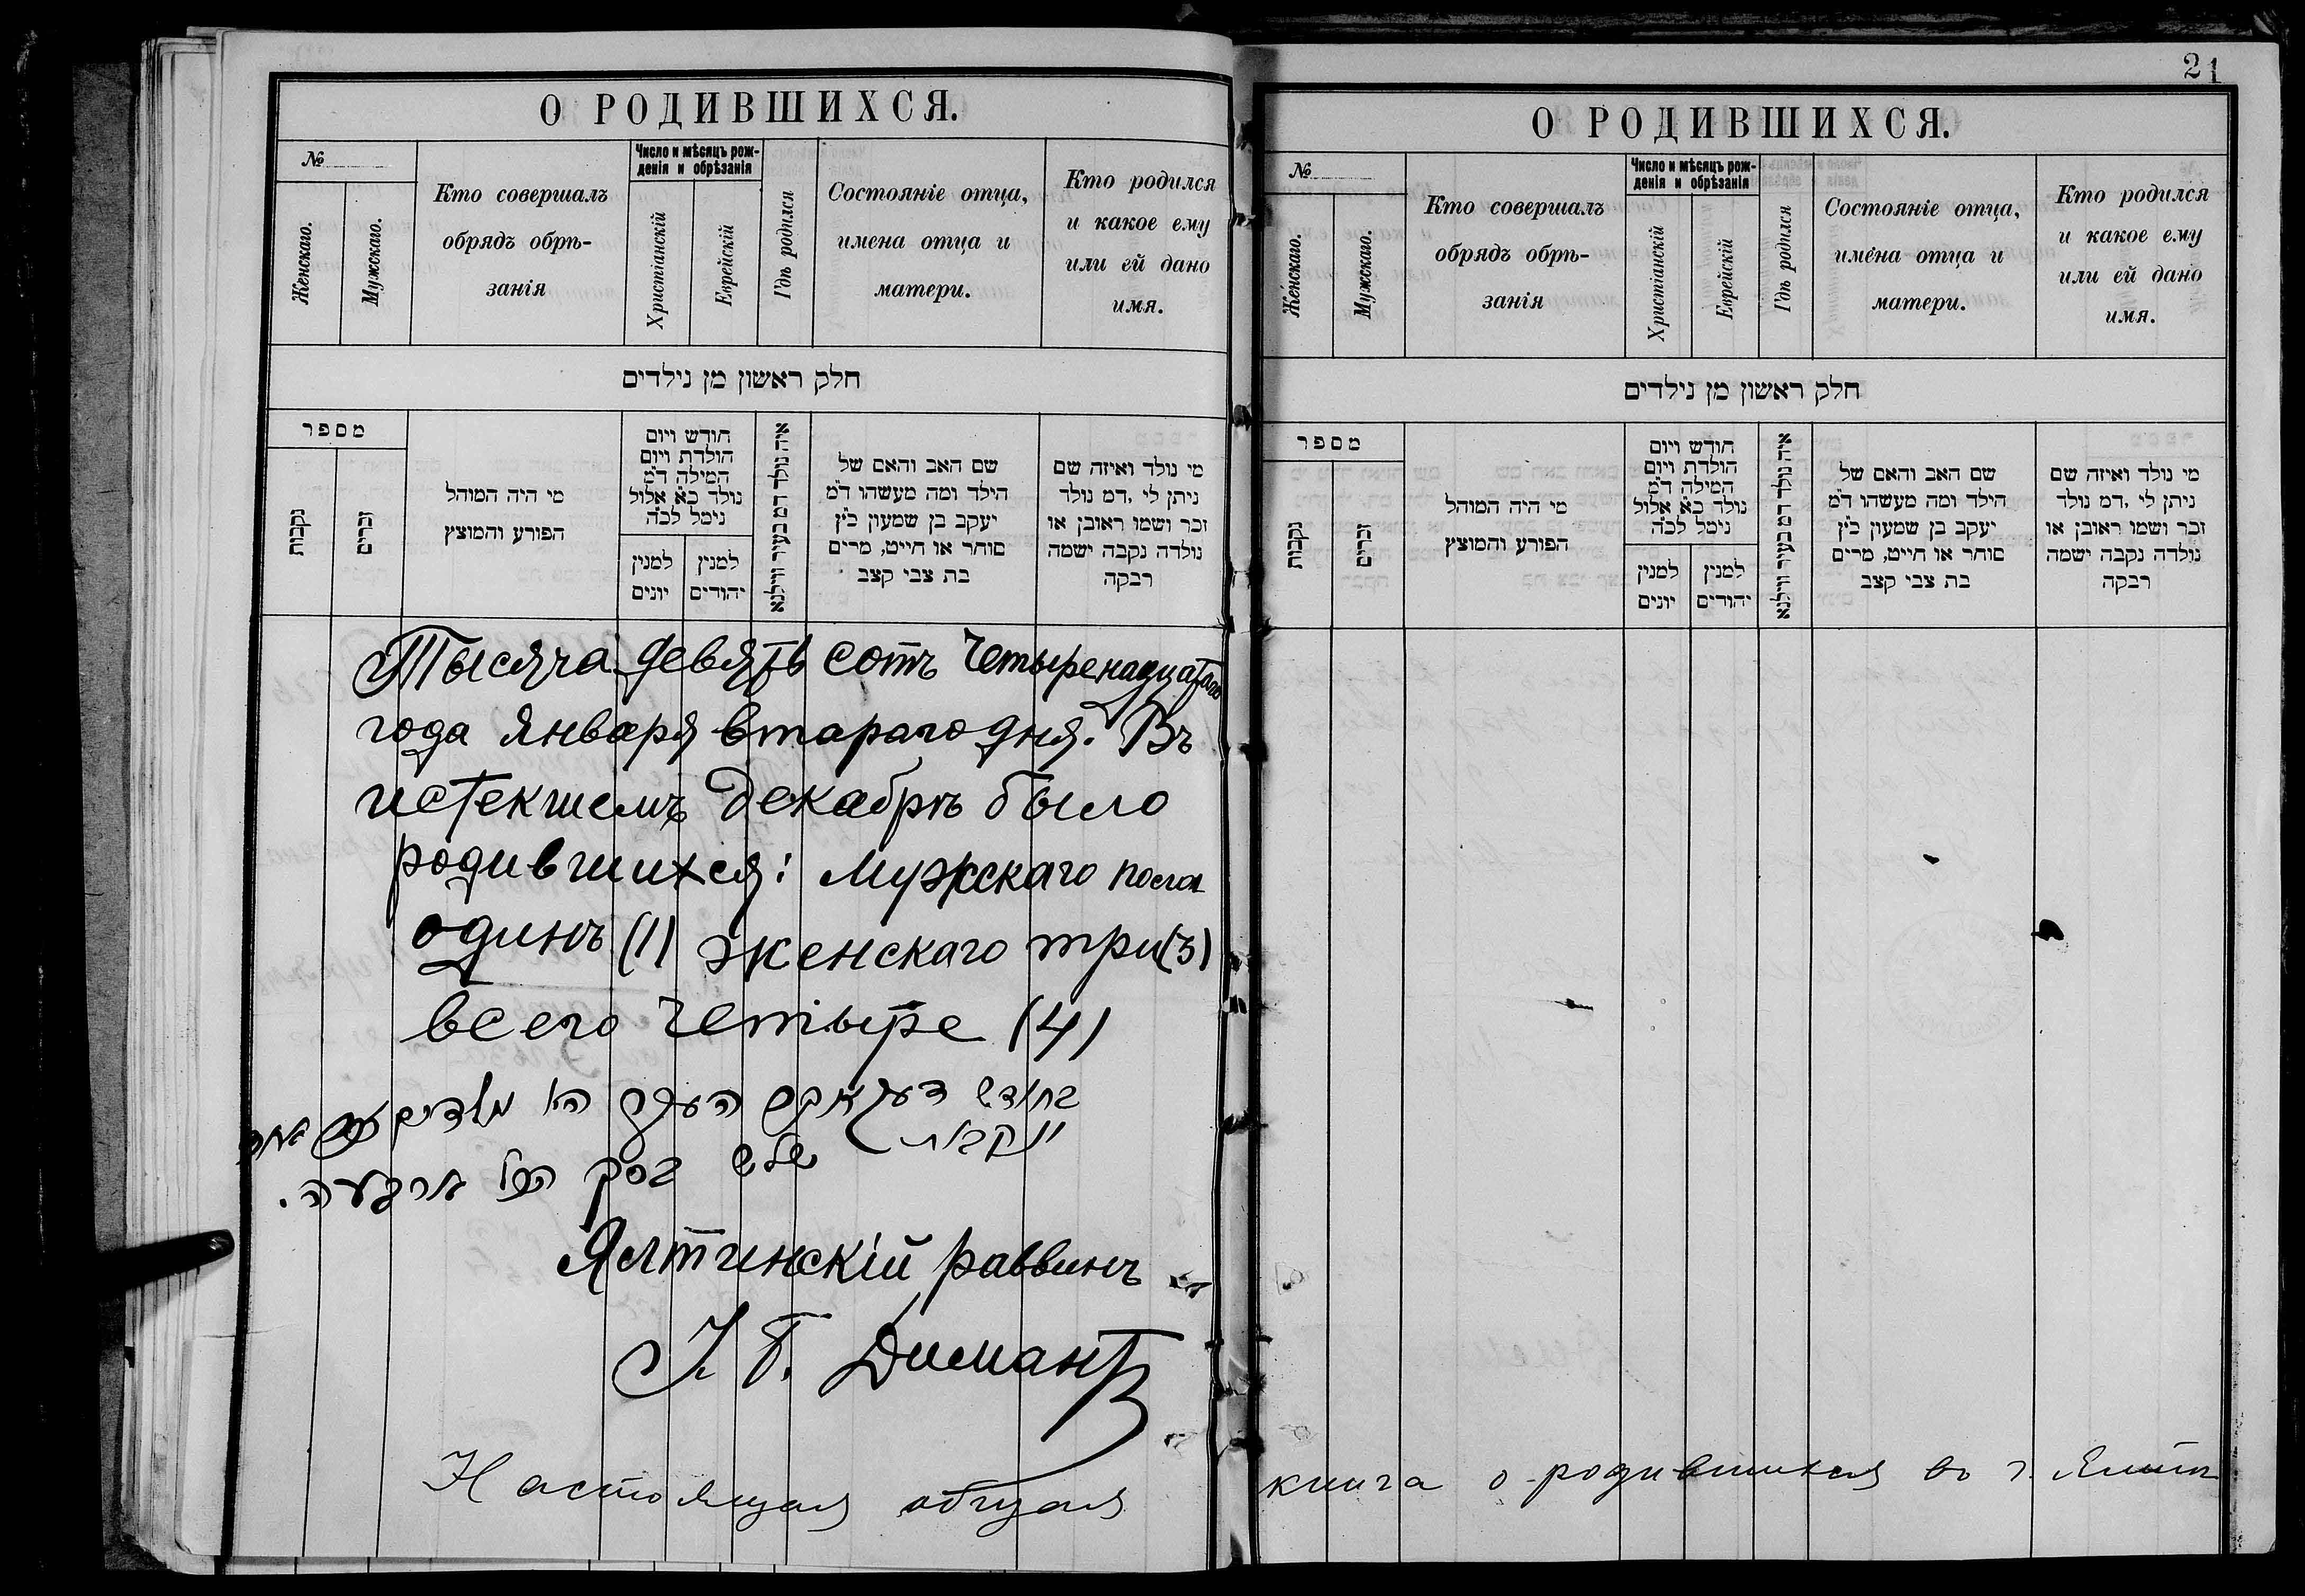 О РОДИВШИХСЯ.
№
Женскаго.
Мужскаго.
Кто совершалъ
обрядъ обрѣ-
занія
Число и мѣсяцъ рож-
денія и обрѣзанія
Христіанскій
Еврейскій
Гдѣ родился
Состояніе отца,
имена отца и
матери.
Кто родился
и какое ему
или ей дано
имя.
חלק ראשון מן נילדים
מספר
נקבות
זכרים
מי היה המוהל
הפורע והמוצץ
חודש ויום
הולדת ויום
המילה ד״מ
נולד כ״א אלול
נימל לכ״ה
למנין
יונים
למנין
יהודים
איה נולד דמ בעיר ווילנא
שם האב והאם של
הילד ומה מעשהו ד״מ
יעקב בן שמעון כ״ץ
סוחר או חייט, מרים
בת צבי קצב
מי נולד ואיזה שם
ניתן לי ,דמ נולד
זכר ושמו ראובן או
נולדה נקבה ישמה
רבקה
Тысяча девять сотъ четыренадцатаго
года Января втараго дня. Въ
истекшемъ Декабрѣ было
родившихся: мужскаго пола
одинъ (1) женскаго три (3)
всего четыре (4)
בחודש דעקאבער העבר היו נולדים
נקבות שלש בסך הכל ארבעה.
Ялтинскій раввинъ
І. Б. Димантъ
Настоящая общая
21
О РОДИВШИХСЯ.
№
Женскаго.
Мужскаго.
Кто совершалъ
обрядъ обрѣ-
занія
Число и мѣсяцъ рож-
денія и обрѣзанія
Христіанскій
Еврейскій
Гдѣ родился
Состояніе отца,
имена отца и
матери.
Кто родился
и какое ему
или ей дано
имя.
חלק ראשון מן נילדים
מספר
נקבות
זכרים
מי היה המוהל
הפורע והמוצץ
חודש ויום
הולדת ויום
המילה ד״מ
נולד כ״א אלול
נימל לכ״ה
למנין
יונים
למנין
יהודים
איה נולד דמ בעיר ווילנא
שם האב והאם של
הילד ומה מעשהו ד״מ
יעקב בן שמעון כ״ץ
סוחר או חייט, מרים
בת צבי קצב
מי נולד ואיזה שם
ניתן לי ,דמ נולד
זכר ושמו ראובן או
נולדה נקבה ישמה
רבקה
книга о родившихся въ г. Ялтѣ